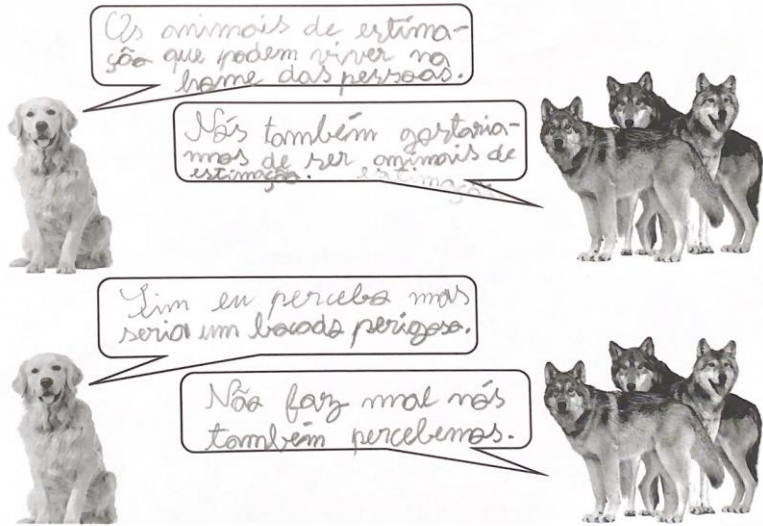 Os animais de estima-
ção que podem viver na
home das pessoas.
Nós também gostaria-
mos de ser animais de
estimação. estimação.
Sim eu percebo mas
seria um bocado perigoso.
Não faz mal nós
também percebemos.